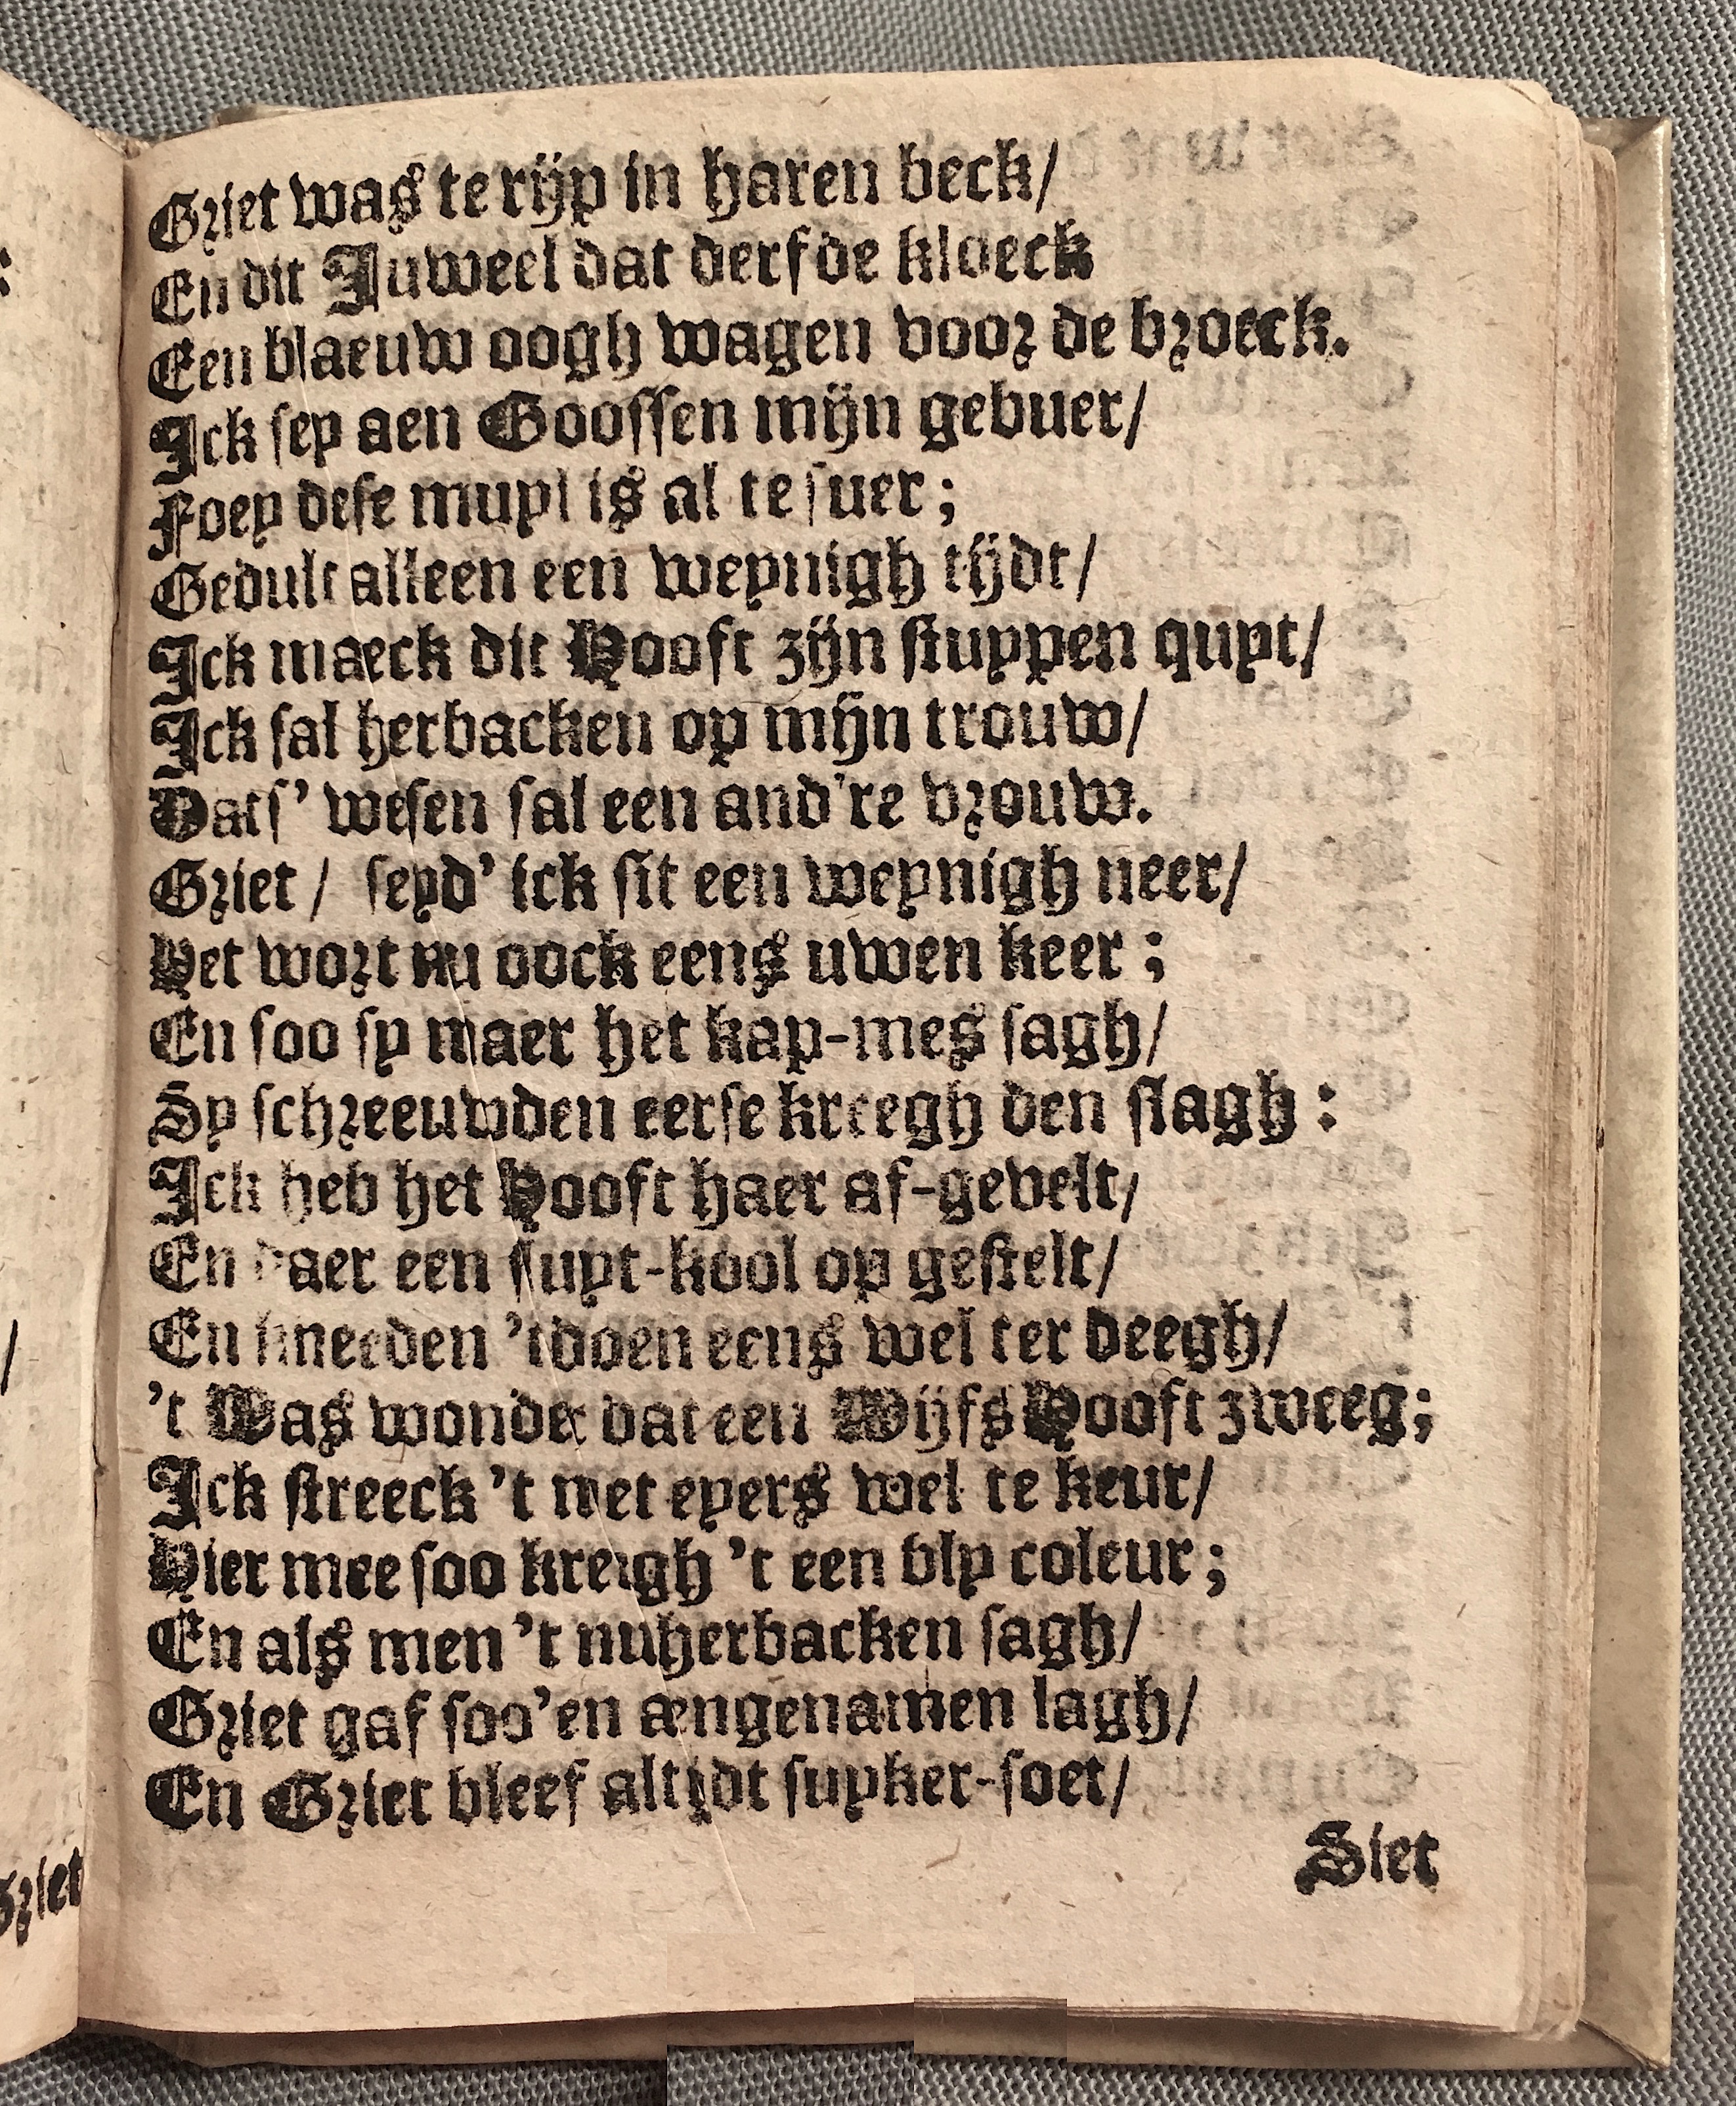 Griet was te rijp in haren beck/
En dit Juweel dat derfde kloeck
Een blaeuw oogh wagen voor de broeck.
Ick sey aen Goossen mijn gebuer/
Foey dese muyl is al te suer;
Gedult alleen een weynigh tijdt/
Ick maeck dit Hooft zijn stuypen quyt/
Ick sal herbacken op mijn trouw/
Dats' wesen sal een and're vrouw.
Griet / seyd' ick sit een weynigh neer/
Het wort nu oock eens uwen keer;
En soo sy maer het kap-mes sagh/
Sy schreeuwden eerse kreegh den slagh:
Ick heb het Hooft haer af-gevelt/
En daer een sluyt-kool op gestelt/
En kneeden 't doen eens wel ter deegh/
't Was wonder dat een Wijfs Hooft zweeg;
Ick streeck 't met eyers wel te keur/
Hier mee soo kreigh 't een bly coleur;
En als men 't nu herbacken sagh/
Griet gaf soo'en ængenamen lagh/
En Griet bleef altijdt suyker-soet/
Siet
Griet